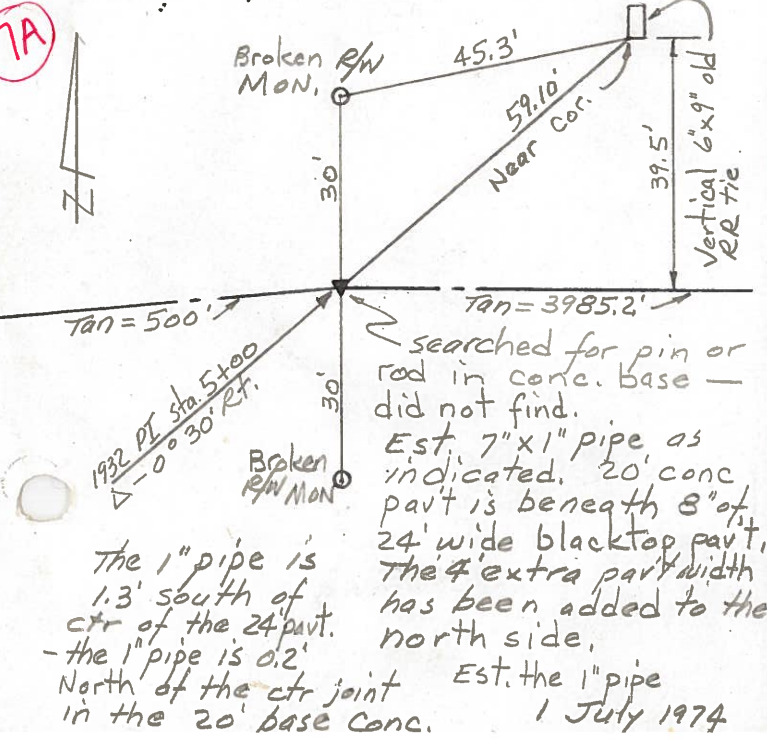 7A
N
Broken R/W
MON.
45.3'
59.10'
Near Cor.
39.5'
Vertical 6"x9" old
RR tie
30'
Tan = 500'
Tan = 3985.2'
1932 PI sta. 5+00
△ - 0° 30' Rt.
30'
Broken
R/W MON
searched for pin or
rod in conc. base —
did not find.
Est. 7" x 1" pipe as
indicated. 20' conc
pav't is beneath 8" of
24' wide blacktop pav't.
The 4' extra pav't width
has been added to the
north side.
The 1" pipe is
1.3' south of
ctr of the 24' pavt.
- the 1" pipe is 0.2'
North of the ctr joint
in the 20' base conc.
Est. the 1" pipe
1 July 1974